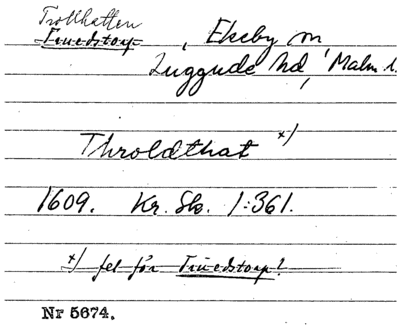 Trollhatten
Truedstorp, Ekeby sn
Luggude hd, Malm l.
Throldthat x)
1609. Kr. Sk. 1:361.
x) fel för Truedstorp?
Nr 5674.